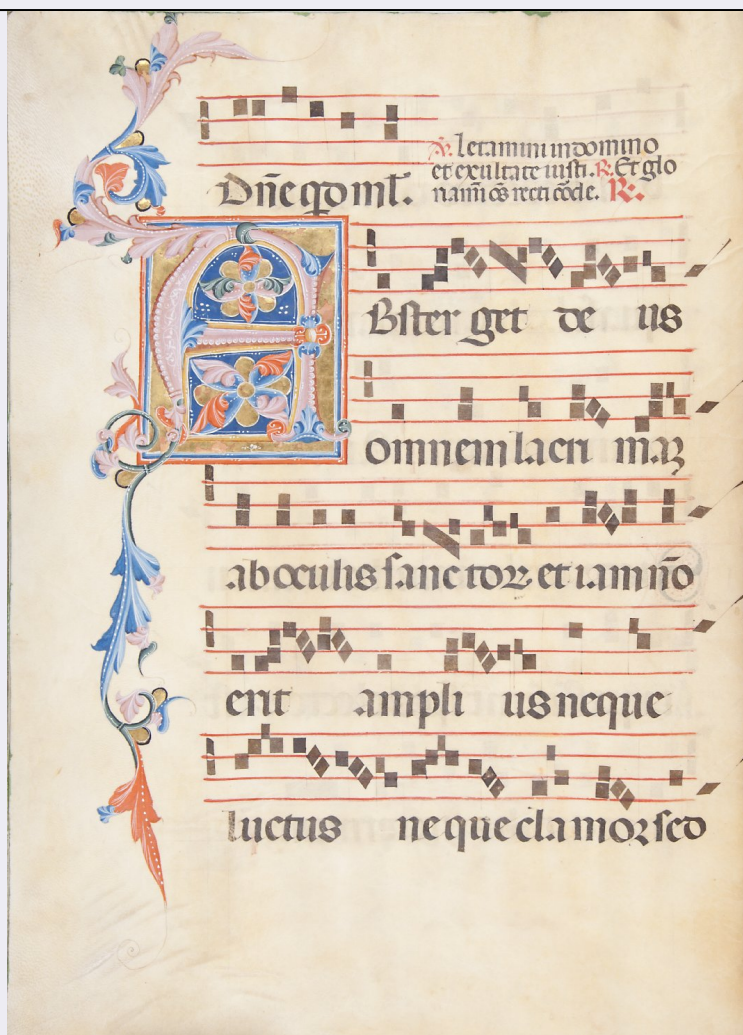 Dñe q̄ dm̄t.
℣. letamini in domino
et exultate iusti. R. Et glo
riamī oēs recti cōde. R.
ABsterget de us
omnem lacri maꝝ
ab oculis sanctoꝝ et iam nō
erit ampli us neque
luctus neque clamoꝛ sed